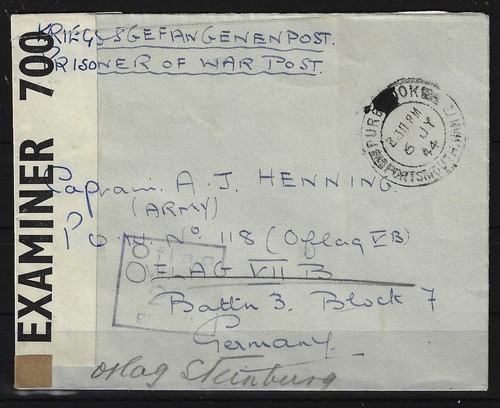 KRIEGSGEFANGENENPOST.
PRISONER OF WAR POST.
EXAMINER 700
PURBROOK
PORTSMOUTH HANTS
2.30 PM
6 JY
44
Captain. A. J. HENNING
(ARMY)
P.O.W. Nº 118 (Oflag VB)
OFLAG VII B
Battn 3. Block 7
Germany.
Oflag
2